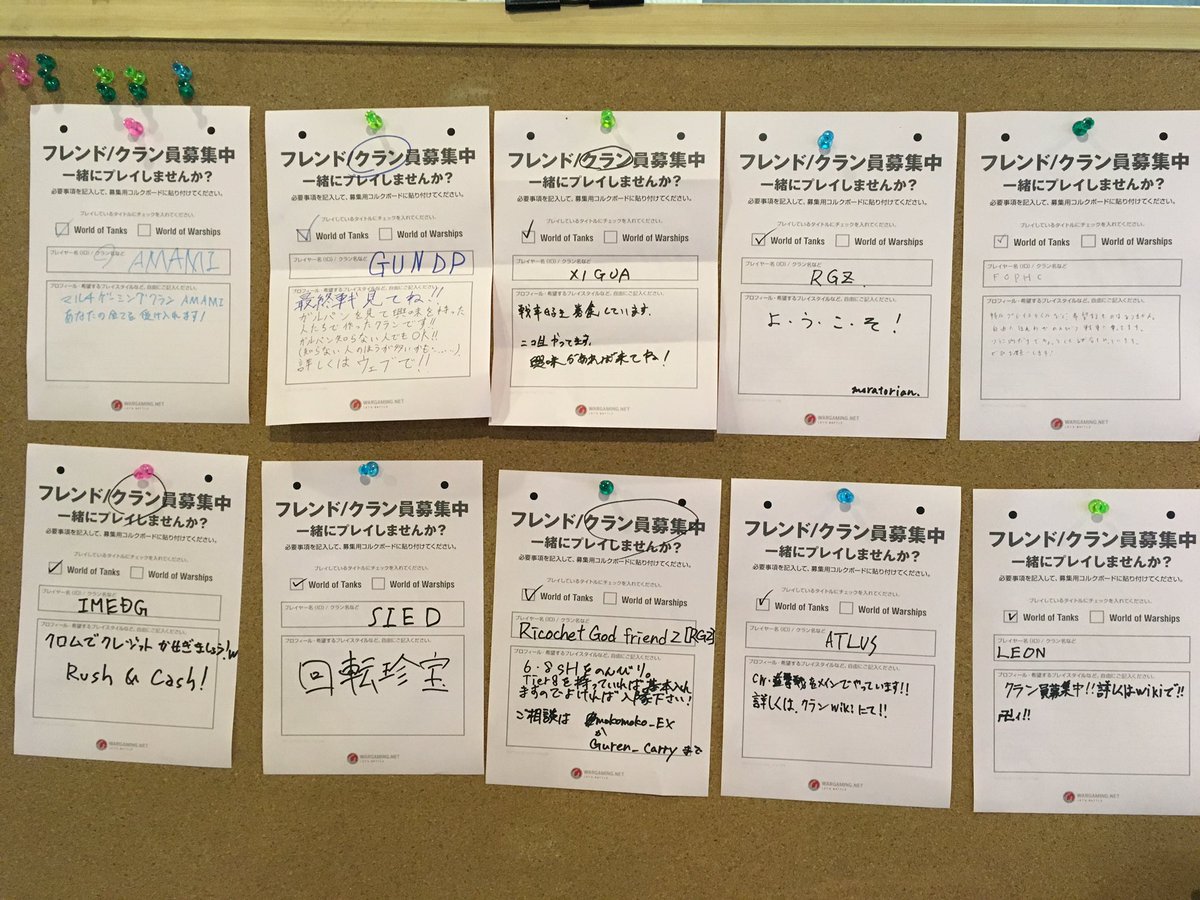 フレンド/クラン員募集中
一緒にプレイしませんか?
必要事項を記入して、募集用コルクボードに貼り付けてください。
プレイしているタイトルにチェックを入れてください。
World of Tanks World of Warships
プレイヤー名(ID) / クラン名など
AMAMI
プロフィール・希望するプレイスタイルなど、自由にご記入ください。
マルチゲーミングクラン AMAMI
あなたの全てを受け入れます!
WARGAMING.NET
LET'S BATTLE
フレンド/クラン員募集中
一緒にプレイしませんか?
必要事項を記入して、募集用コルクボードに貼り付けてください。
プレイしているタイトルにチェックを入れてください。
World of Tanks World of Warships
プレイヤー名(ID) / クラン名など
GUNDP
プロフィール・希望するプレイスタイルなど、自由にご記入ください。
最終戦見てね!!
ガルパンを見て興味を持った
人たちで作ったクランです!!
ガルパン知らない人でもOK!!
(知らない人のほうが多いかも……)
詳しくはウェブで!!
WARGAMING.NET
LET'S BATTLE
フレンド/クラン員募集中
一緒にプレイしませんか?
必要事項を記入して、募集用コルクボードに貼り付けてください。
プレイしているタイトルにチェックを入れてください。
World of Tanks World of Warships
プレイヤー名(ID) / クラン名など
XIGUA
プロフィール・希望するプレイスタイルなど、自由にご記入ください。
しています。
やってます。
興味があれば来てね!
WARGAMING.NET
LET'S BATTLE
フレンド/クラン員募集中
一緒にプレイしませんか?
必要事項を記入して、募集用コルクボードに貼り付けてください。
プレイしているタイトルにチェックを入れてください。
World of Tanks World of Warships
プレイヤー名(ID) / クラン名など
RGZ.
プロフィール・希望するプレイスタイルなど、自由にご記入ください。
よ・う・こ・そ!
moratorian.
WARGAMING.NET
LET'S BATTLE
フレンド/クラン員募集中
一緒にプレイしませんか?
必要事項を記入して、募集用コルクボードに貼り付けてください。
プレイしているタイトルにチェックを入れてください。
World of Tanks World of Warships
プレイヤー名(ID) / クラン名など
FOPHC
プロフィール・希望するプレイスタイルなど、自由にご記入ください。
WARGAMING.NET
LET'S BATTLE
フレンド/クラン員募集中
一緒にプレイしませんか?
必要事項を記入して、募集用コルクボードに貼り付けてください。
プレイしているタイトルにチェックを入れてください。
World of Tanks World of Warships
プレイヤー名(ID) / クラン名など
IMEDG
プロフィール・希望するプレイスタイルなど、自由にご記入ください。
クロムでクレジットかせぎましょう!w
Rush & Cash!
WARGAMING.NET
LET'S BATTLE
フレンド/クラン員募集中
一緒にプレイしませんか?
必要事項を記入して、募集用コルクボードに貼り付けてください。
プレイしているタイトルにチェックを入れてください。
World of Tanks World of Warships
プレイヤー名(ID) / クラン名など
SIED
プロフィール・希望するプレイスタイルなど、自由にご記入ください。
回転珍宝
WARGAMING.NET
LET'S BATTLE
フレンド/クラン員募集中
一緒にプレイしませんか?
必要事項を記入して、募集用コルクボードに貼り付けてください。
プレイしているタイトルにチェックを入れてください。
World of Tanks World of Warships
プレイヤー名(ID) / クラン名など
Ricochet God friendZ [RGZ]
プロフィール・希望するプレイスタイルなど、自由にご記入ください。
6・8SHをのんびり。
Tier8を持っていれば基本入れ
ますのでよければ入隊下さい!
ご相談は mokomoko_EX
か
Guren_Carryまで
WARGAMING.NET
LET'S BATTLE
フレンド/クラン員募集中
一緒にプレイしませんか?
必要事項を記入して、募集用コルクボードに貼り付けてください。
プレイしているタイトルにチェックを入れてください。
World of Tanks World of Warships
プレイヤー名(ID) / クラン名など
ATLUS
プロフィール・希望するプレイスタイルなど、自由にご記入ください。
CW・をメインでやっています!!
詳しくは、クランwikiにて!!
WARGAMING.NET
LET'S BATTLE
フレンド/クラン員募集中
一緒にプレイしませんか?
必要事項を記入して、募集用コルクボードに貼り付けてください。
プレイしているタイトルにチェックを入れてください。
World of Tanks World of Warships
プレイヤー名(ID) / クラン名など
LEON
プロフィール・希望するプレイスタイルなど、自由にご記入ください。
クラン員募集中!!詳しくはwikiで!!
卍ィ!!
WARGAMING.NET
LET'S BATTLE